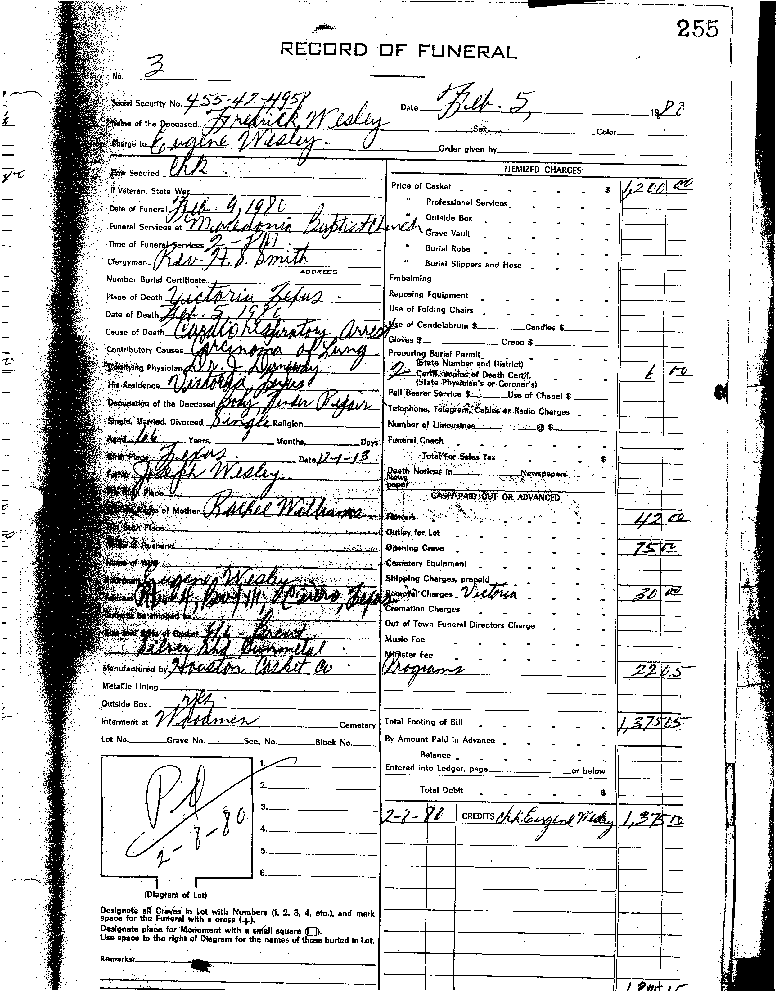 255
RECORD OF FUNERAL
No. 3
Social Security No. 455-47-4958
Date Feb. 5, 1980
Name of the Deceased Fredrick Wesley
Sex Color
Charge to Eugene Wesley
Order given by
How Secured Chk
If Veteran, State War
Date of Funeral Feb. 9, 1980
Funeral Services at Macedonia Baptist Church
Time of Funeral Services 2-
Clergyman Rev. H. S. Smith
ADDRESS
Number Burial Certificate
Place of Death Victoria Texas
Date of Death Feb. 5, 1980
Cause of Death Cardiorespiratory Arrest
Contributory Causes Carcinoma of Lung
Certifying Physician Dr. J.
His Residence Victoria, Texas
Occupation of the Deceased Body Fender Repair
Single, Married, Divorced Single Religion
Aged 66 Years, Months, Days
Birth Place Texas Date 12-1-13
Father Joseph Wesley
His Birth Place
Name of Mother Rachel Williams
Her Birth Place
Eugene Wesley
Size and Style of Casket
Silver and Gunmetal
Manufactured by Houston Casket Co
Metallic Lining
Outside Box yes
Interment at Woodmen Cemetery
Lot No. Grave No. Sec. No. Block No.
Pd
2-8-80
1.
2.
3.
4.
5.
6.
(Diagram of Lot)
Designate all Graves in Lot with Numbers (1, 2, 3, 4, etc.), and mark
space for the Funeral with a cross (+).
Designate place for Monument with a small square (□).
Use space to the right of Diagram for the names of those buried in Lot.
Remarks:
ITEMIZED CHARGES
Price of Casket $ 1,200 00
" Professional Services
" Outside Box
" Grave Vault
" Burial Robe
" Burial Slippers and Hose
Embalming
Reposing Equipment
Use of Folding Chairs
Use of Candelabrum $ Candles $
Gloves $ Crepe $
Procuring Burial Permit
(State Number and District)
2 Certif. copies of Death Certf. 6 00
(State Physician's or Coroner's)
Pall Bearer Service $ Use of Chapel $
Telephone, Telegram, Cables or Radio Charges
Number of Limousines @ $
Funeral Coach
Total for Sales Tax $
Death Notices in Newspapers
CASH PAID OUT OR ADVANCED
Flowers 42 00
Outlay for Lot
Opening Grave 75 00
Cemetery Equipment
Shipping Charges, prepaid
Charges Victoria 30 00
Cremation Charges
Out of Town Funeral Directors Charge
Music Fee
Minister Fee
Programs 22 05
Total Footing of Bill 1,375 05
By Amount Paid in Advance
Balance
Entered into Ledger, page or below
Total Debit $
2-8-80 CREDITS Chk Eugene Wesley 1,375 00